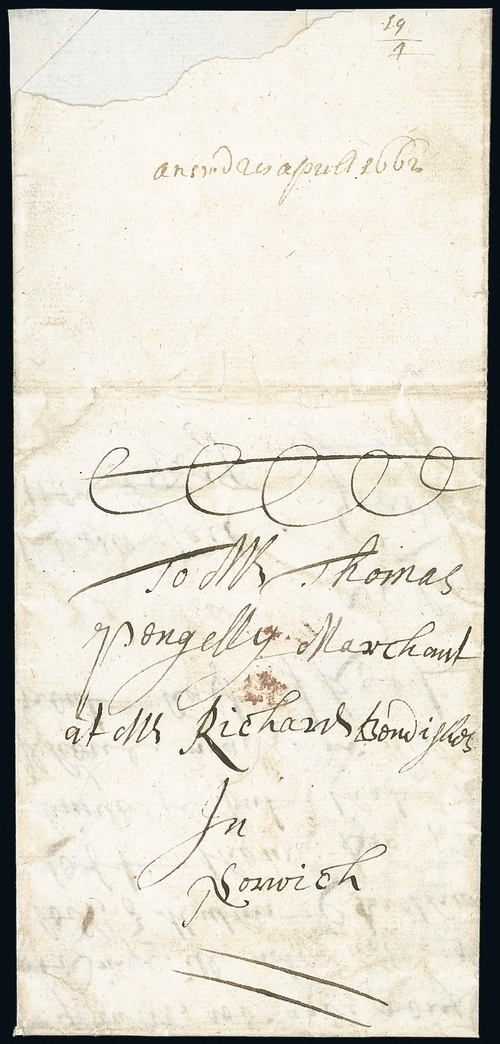 19
4
aprill 1662
To Mr Thomas
Pengelly Marchant
at Mr Richard Bendishes
In
Norwich